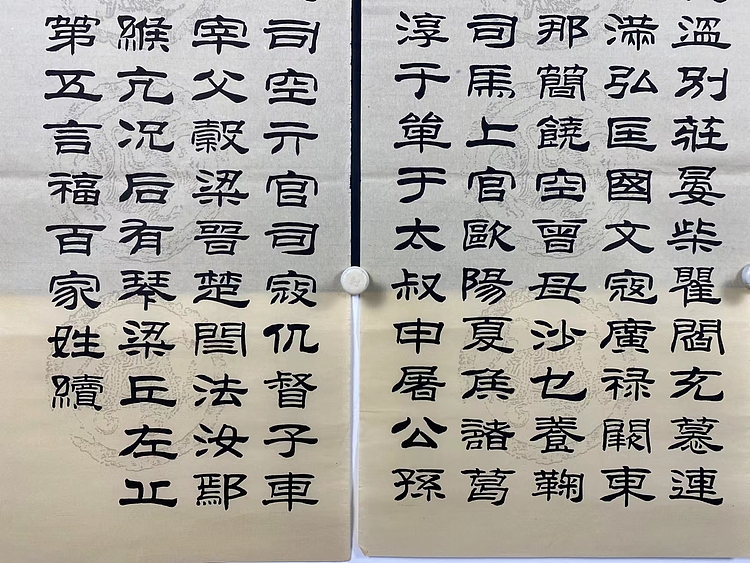 溫別莊晏柴瞿閻充慕連
滿弘匡國文寇廣祿闕東
那簡饒空曾母沙乜養鞠
司馬上官歐陽夏侯諸葛
淳于單于太叔申屠公孫
司空亓官司寇仉督子車
宰父穀梁晉楚閆法汝鄢
緱亢況后有琴梁丘左丘
第五言福百家姓續